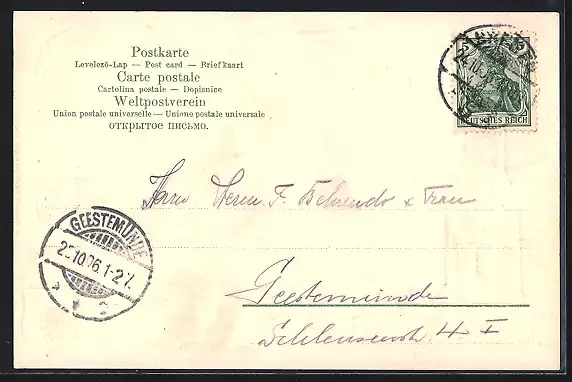 Postkarte
Levelező-Lap — Post card — Briefkaart
Carte postale
Cartolina postale — Dopisnice
Weltpostverein
Union postale universelle — Unione postale universale
ОТКРЫТОЕ ПИСЬМО.
5 5
DEUTSCHES REICH
Herrn Herm. F. Behrends & Frau
GEESTEMÜNDE
25.10.06.1-2N.
Geestemünde
Schleusenstr. 4 I